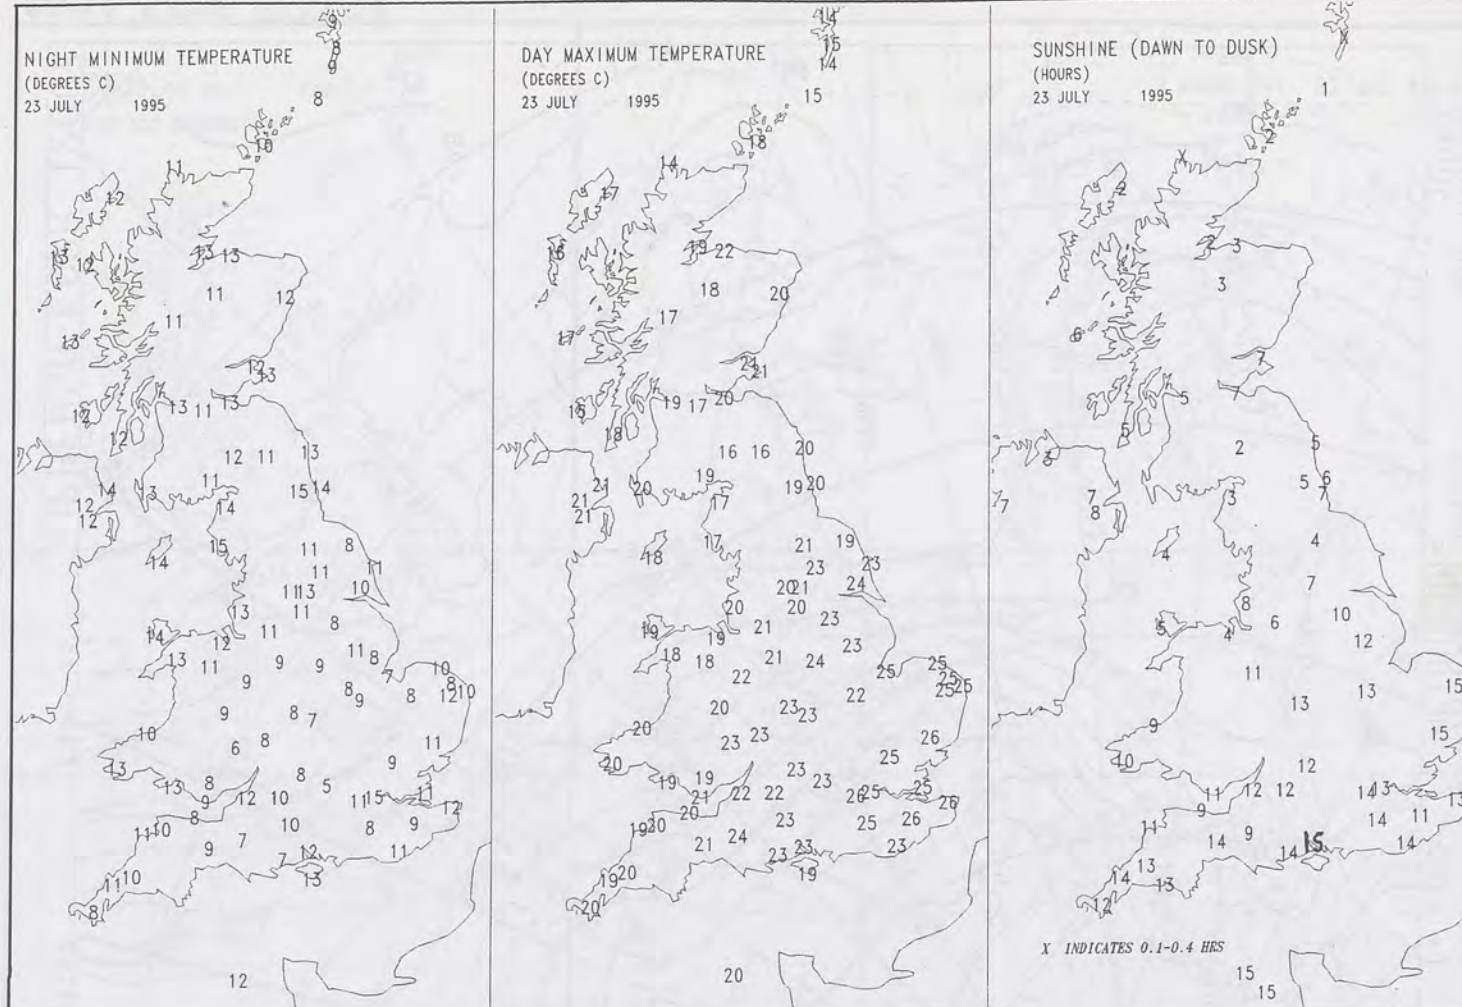 NIGHT MINIMUM TEMPERATURE
(DEGREES C)
23 JULY 1995
9
8
9
8
10
11
12
13
12
13
13
11
12
11
13
12
13
12
13
11
13
12
12
11
13
11
14
13
15
14
12
12
14
15
14
11
8
11
11
11
13
10
13
11
8
14
12
11
13
11
9
9
11
8
7
10
8
10
12
9
8
9
8
9
8
7
10
6
8
11
13
13
8
8
5
9
9
12
10
11
15
11
12
8
11
10
7
10
8
9
9
7
12
11
13
11
10
8
12
DAY MAXIMUM TEMPERATURE
(DEGREES C)
23 JULY 1995
14
15
14
15
18
14
17
16
19
22
18
20
17
17
21
21
16
19
17
20
18
16
16
20
21
20
19
19
20
21
21
17
18
17
21
19
23
23
20
21
24
20
20
23
19
19
21
23
18
18
21
24
22
25
25
25
25
25
22
20
20
23
23
23
23
26
20
25
19
19
23
23
21
22
22
26
25
25
26
20
19
20
23
25
26
21
24
23
23
23
19
19
20
20
20
SUNSHINE (DAWN TO DUSK)
(HOURS)
23 JULY 1995
1
2
X
2
2
3
3
6
7
7
5
5
3
2
5
5
6
7
7
7
8
3
4
4
7
8
6
10
5
4
12
11
13
13
15
9
10
15
12
11
12
12
14
13
13
9
11
14
11
14
9
14
15
14
13
14
13
12
X INDICATES 0.1-0.4 HRS
15
15